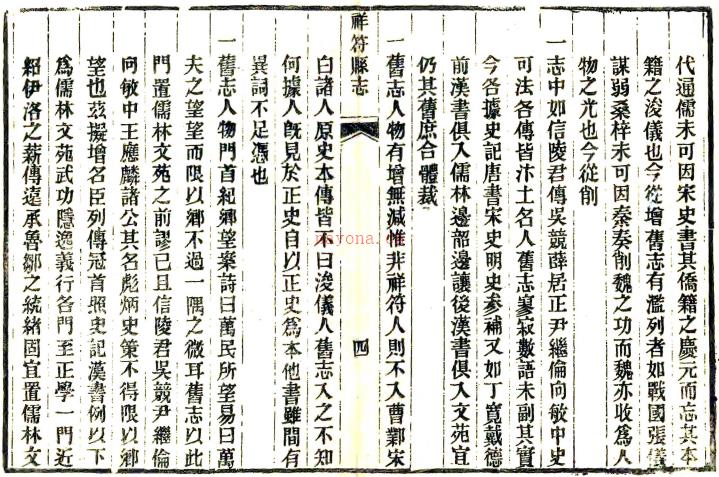 代通儒未可因宋史書其僑籍之慶元而忘其本
籍之浚儀也今從增舊志有濫列者如戰國張儀
謀弱桑梓未可因秦奏削魏之功而魏亦收爲人
物之光也今從削
一志中如信陵君傳吳兢薛居正尹繼倫向敏中史
可法各傳皆汴土名人舊志寥寂數語未副其實
今各據史記唐書宋史明史參補又如丁寬戴德
前漢書俱入儒林邊韶邊讓後漢書俱入文苑宜
仍其舊庶合體裁
祥符縣志
四
一舊志人物有增無減惟非祥符人則不入曹鄴宋
白諸人原史本傳皆不曰浚儀人舊志入之不知
何據人旣見於正史自以正史爲本他書雖間有
異詞不足憑也
一舊志人物門首紀鄉望案詩曰萬民所望易曰萬
夫之望望而限以鄉不過一隅之微耳舊志以此
門置儒林文苑之前謬已且信陵君吳兢尹繼倫
向敏中王應麟諸公其名彪炳史策不得限以鄉
望也茲擬增名臣列傳冠首照史記漢書例以下
爲儒林文苑武功隱逸義行各門至正學一門近
紹伊洛之薪傳遠承魯鄒之統緒固宜置儒林文
nayona.cn